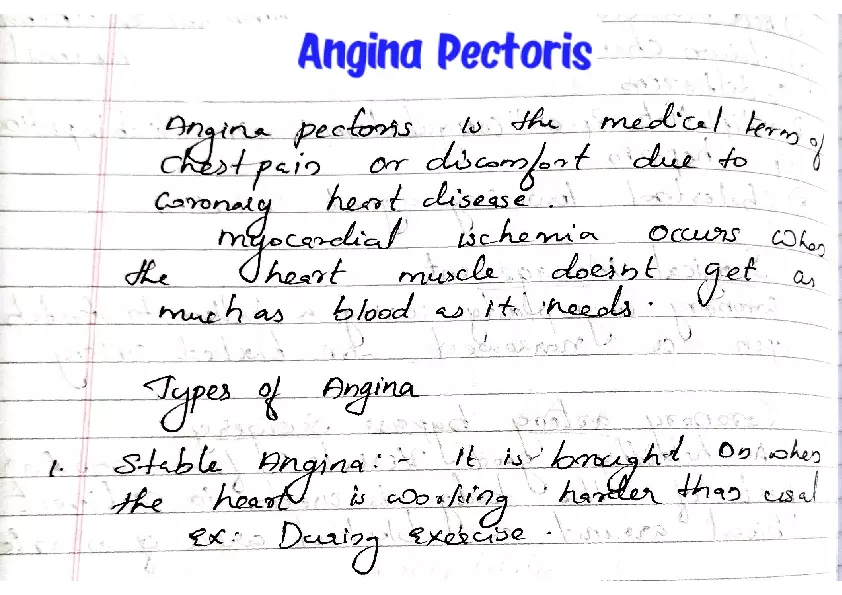 Angina Pectoris
Angina pectoris is the medical term of
chest pain or discomfort due to
coronary heart disease.
myocardial ischemia occurs when
the heart muscle doesint get as
much as blood as it needs.
Types of Angina
1. Stable Angina:- It is brought on when
the heart is working harder than usal
Ex: During exercise.